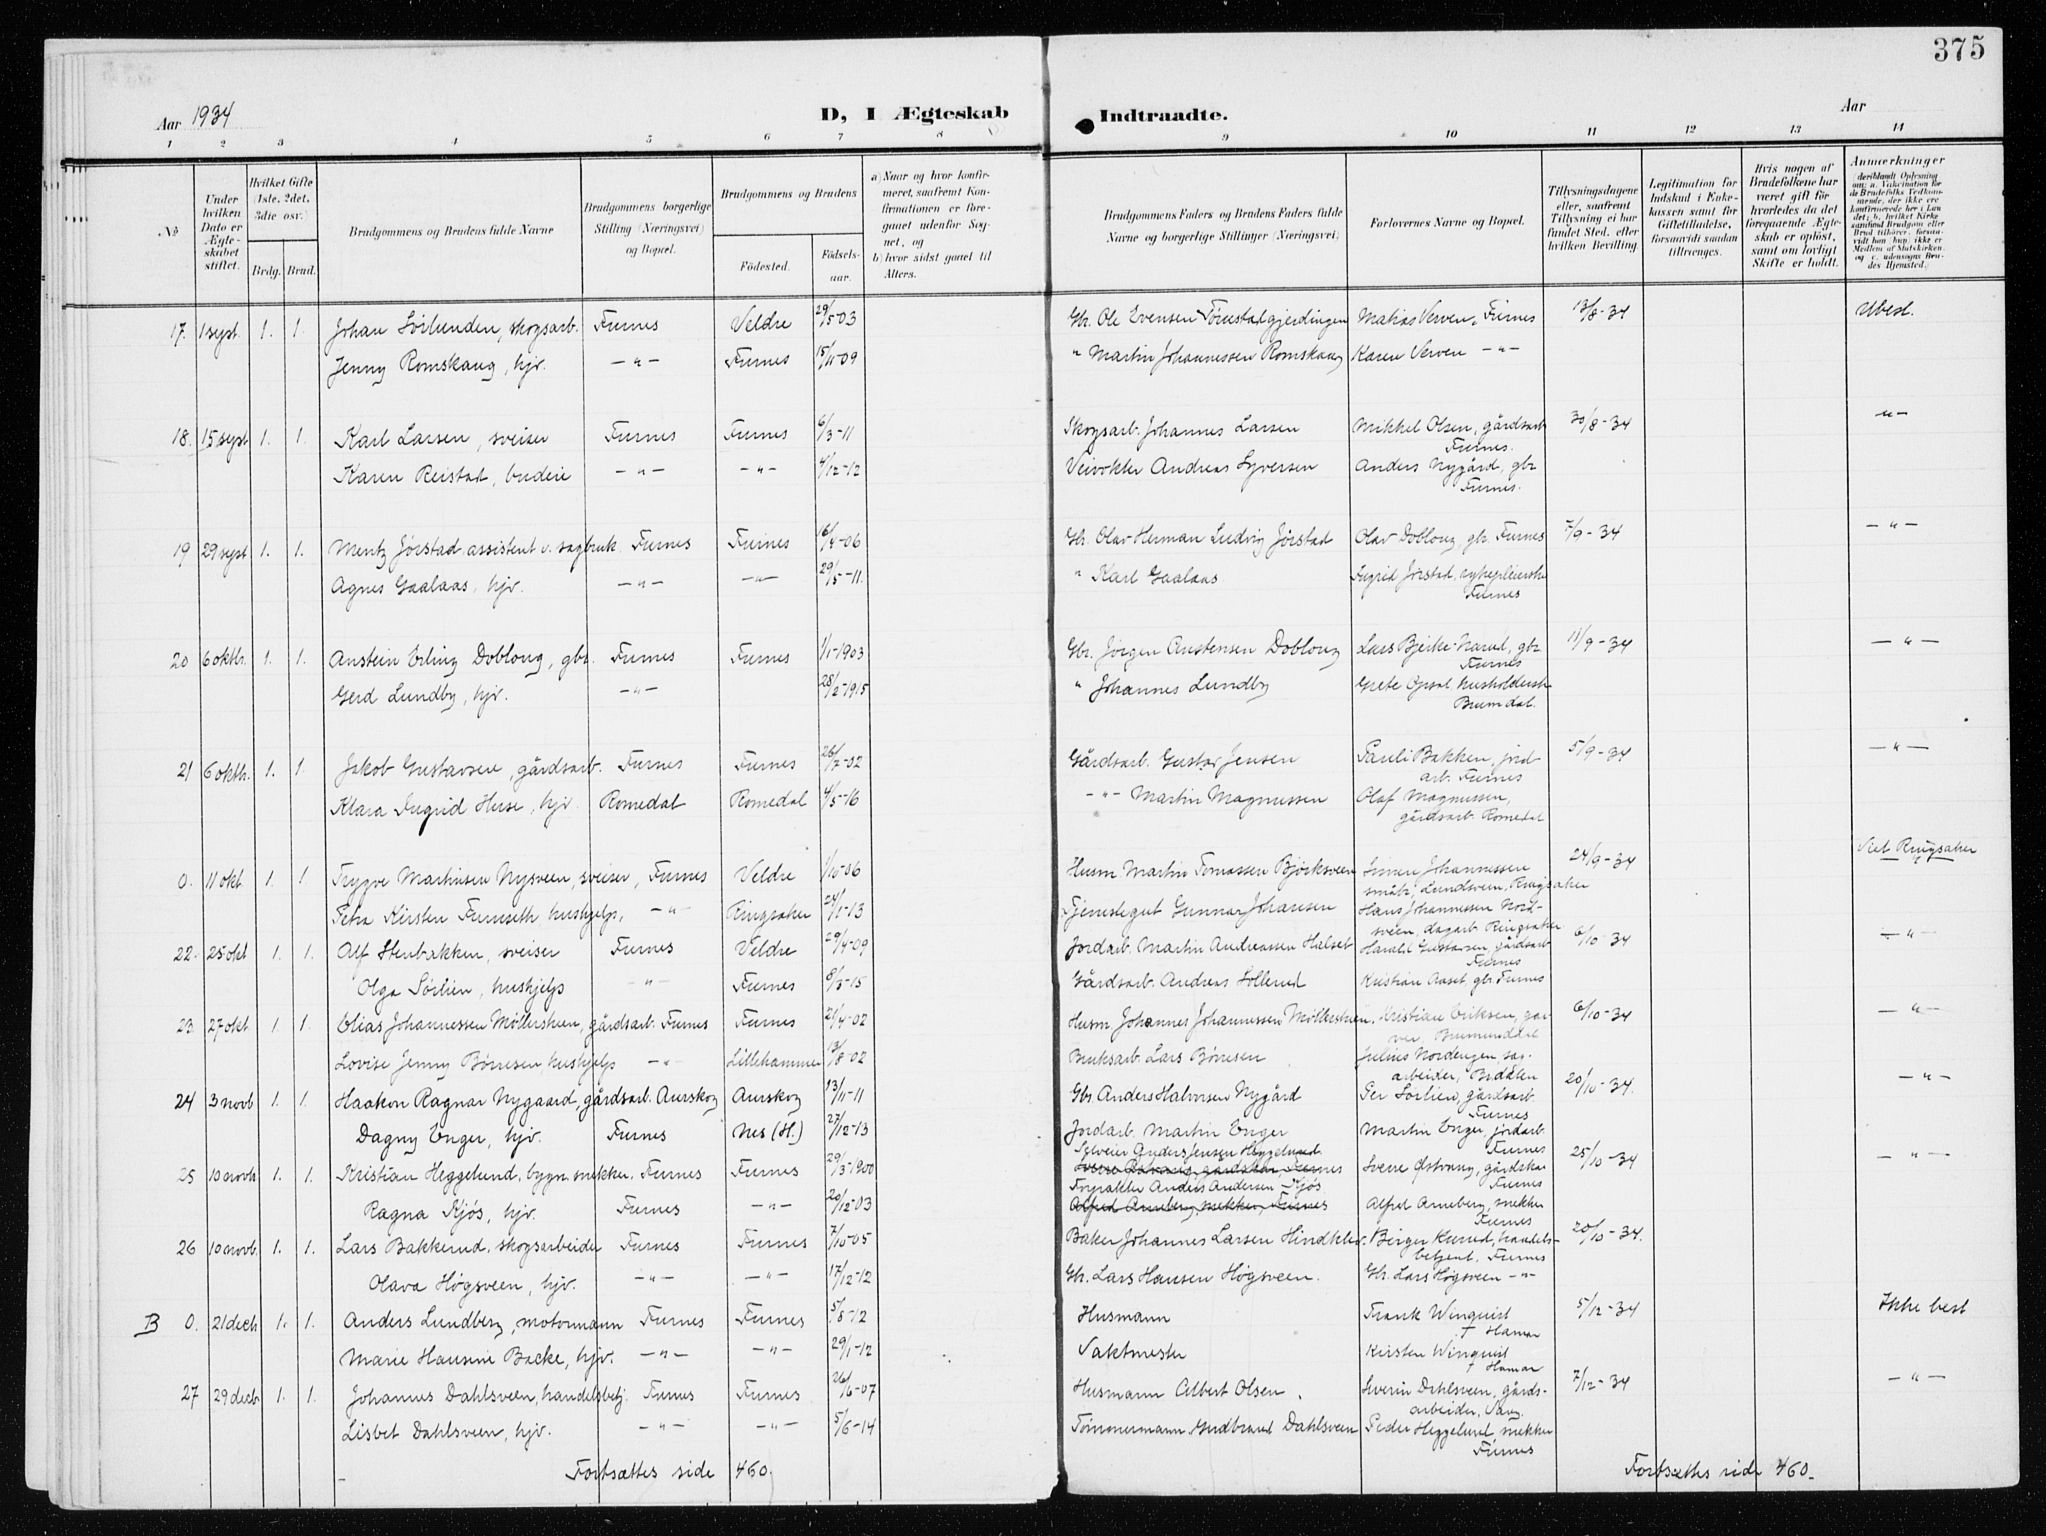 375
Aar 1934
D, I Ægteskab Indtraadte.
Aar
1 2 3 4 5 6 7 8 9 10 11 12 13 14
No.
Under hvilken Dato er Ægteskabet stiftet.
Hvilket Gifte (1ste, 2det, 3die osv.)
Brdg. Brud.
Brudgommens og Brudens fulde Navne
Brudgommens borgerlige Stilling (Næringsvei) og Bopæl.
Brudgommens og Brudens
Fødested.
Fødselsaar.
a) Naar og hvor konfirmeret, saafremt Konfirmationen er foregaaet udenfor Sognet, og
b) hvor sidst gaaet til Alters.
Brudgommens Faders og Brudens Faders fulde Navne og borgerlige Stillinger (Næringsvei)
Forlovernes Navne og Bopæl.
Tillysningsdagene eller, saafremt Tillysning ei har fundet Sted, efter hvilken Bevilling
Legitimation for Indskud i Enkekassen samt for Giftetilladelse, forsaavidt saadan tiltrænges.
Hvis nogen af Brudefolkene har været gift før hvorledes da det foregaaende Ægteskab er opløst, samt om lovligt Skifte er holdt.
Anmærkninger (deriblandt Oplysning om: a. Vakcination for de Brudefolks Vedkommende, der ikke ere konfirmerede her i Landet; b. hvilket Kirkesamfund Brudgom eller Brud tilhører, forsaavidt han, hun ikke er Medlem af Statskirken, og c. udensogns Brudes Hjemsted.)
17. 1 sept. 1. 1. Johan Sörlunden, skogsarb. Furnes Veldre 29/5-03 Gbr. Ole Evensen Tørrestadgjerdingen Matias Verven, Furnes 13/8-34 Ubest.
Jenny Romskaug, hjv. —"— Furnes 15/11-09 " Martin Johannessen Romskaug Karen Verven —"—
18. 15 sept 1. 1. Karl Larsen, sveiser Furnes Furnes 6/3-11 Skogsarb. Johannes Larsen Mikkel Olsen, gårdsarb 30/8-34 —"—
Furnes.
Karen Reistad, budeie —"— —"— 4/12-12 Veivokter Andreas Syversen Anders Nygård, gbr
Furnes.
19 29 sept 1. 1. Mentz Jørstad assistent v. sagbruk Furnes Furnes 16/4-06 Gbr. Olav Herman Ludvig Jørstad Olav Doblong, gbr. Furnes 7/9-34 —"—
Agnes Gaalaas, hjv. —"— —"— 29/5-11. " Karl Gaalaas Ingrid Jørstad, sykepleierske
Furnes
20 6 oktb. 1. 1. Anstein Erling Doblong, gbr. Furnes Furnes 1/1-1903 Gbr. Jörgen Austensen Doblong Lars Bjerke-Narud, gbr 11/9-34 —"—
Furnes
Gerd Lundby, hjv. —"— 28/2-1915 " Johannes Lundby Grete Opsal, husholderske
Brumdal.
21 6 oktb. 1. 1. Jakob Gustavsen, gårdsarb. Furnes Furnes 26/2-02 Gårdsarb. Gustav Jensen Pauli Bakken, jord 5/9-34 —"—
arb. Furnes
Klara Ingrid Huse, hjv. Romedal Romedal 4/5-16 —"— Martin Magnussen Olaf Magnussen,
gårdsarb. Romedal
0. 11 okt 1. 1. Trygve Martinsen Nysveen, sveiser, Furnes Veldre 1/10-06 Husm. Martin Tomassen Bjørksveen Simen Johannessen 24/9-34 Viet Ringsaker
småbr, Lundsveen, Ringsaker
Petra Kirsten Furuseth hushjelp, —"— Ringsaker 24/1-13 Tjenestegut Gunnar Johansen Hans Johannessen Nord-
sveen, dagarb. Ringsaker
22. 25 okt 1. 1. Alf Stenbakken, sveiser Furnes Veldre 29/4-09 Jordarb. Martin Andreassen Halset Harald Gustavsen, gårdsarb 6/10-34 —"—
Furnes
Olga Sörlien, hushjelp —"— Furnes 8/3-15 Gårdsarb. Andreas Sollerud Kristian Aaset, gbr. Furnes
23. 27 okt 1. 1. Elias Johannessen Möllersteen, gårdsarb. Furnes Furnes 21/4-02 Husm. Johannes Johannessen Möllersteen. Kristian Eriksen, gar- 6/10-34 —"—
ver, Brumunddal
Lovise Jenny Børresen hushjelp —"— Lillehammer 13/8-02 Bruksarb. Lars Börresen Julius Nordengen, sag-
arbeider, Brddalen
24 3 novb 1. 1. Haakon Ragnar Nygaard, gårdsarb. Aurskog Aurskog 13/11-11 Gbr. Anders Halvorsen Nygård Per Sörlien, gårdsarb. 20/10-34. —"—
Furnes
Dagny Enger, hjv. Furnes Nes (H.) 27/12-13 Jordarb. Martin Enger Martin Enger, jordarb
Furnes
Selveier Anders Jensen Heggelund
25 10 novb 1. 1. Kristian Heggelund, bygn.snekker, Furnes Furnes 29/3-1900 Sverre Østvang, gårdskar, Furnes Sverre Østvang, gårdskar 25/10-34 —"—
Furnes
Forpakter Anders Andersen Kjøs
Ragna Kjøs, hjv. Furnes —"— 20/12-03 Alfred Arneberg, snekker, Furnes Alfred Arneberg, snekker
Furnes
26 10 novb. 1. 1. Lars Bakkerud, skogsarbeider Furnes Furnes 7/10-05 Baker Johannes Larsen Hindklev. Birger Kurud, handels- 20/10-34.
betjent. Furnes
Olava Høgsveen, hjv. —"— —"— 17/12-12 Gbr. Lars Hansen Høgsveen. Gbr. Lars Høgsveen —"—
B 0. 21 decb 1. 1. Anders Lundberg, motormann Furnes Furnes 5/8-12 Husmann Frank Winquist 5/12-34 Ikke best
† Hamar
Marie Hansine Backe, hjv. —"— —"— 29/1-12 Vaktmester Kirsten Winquist
† Hamar
27 29 decb. 1. 1. Johannes Dahlsveen, handelsbetj. Furnes Furnes 26/6-07 Husmann Albert Olsen. Severin Dahlsveen, gårds- 7/12-34 —"—
arbeider, Vang.
Lisbet Dahlsveen, hjv. —"— —"— 5/6-14 Tömmermann Gudbrand Dahlsveen Peder Heggelund, snekker
Furnes
Fortsættes side 460. Fortsættes side 460.